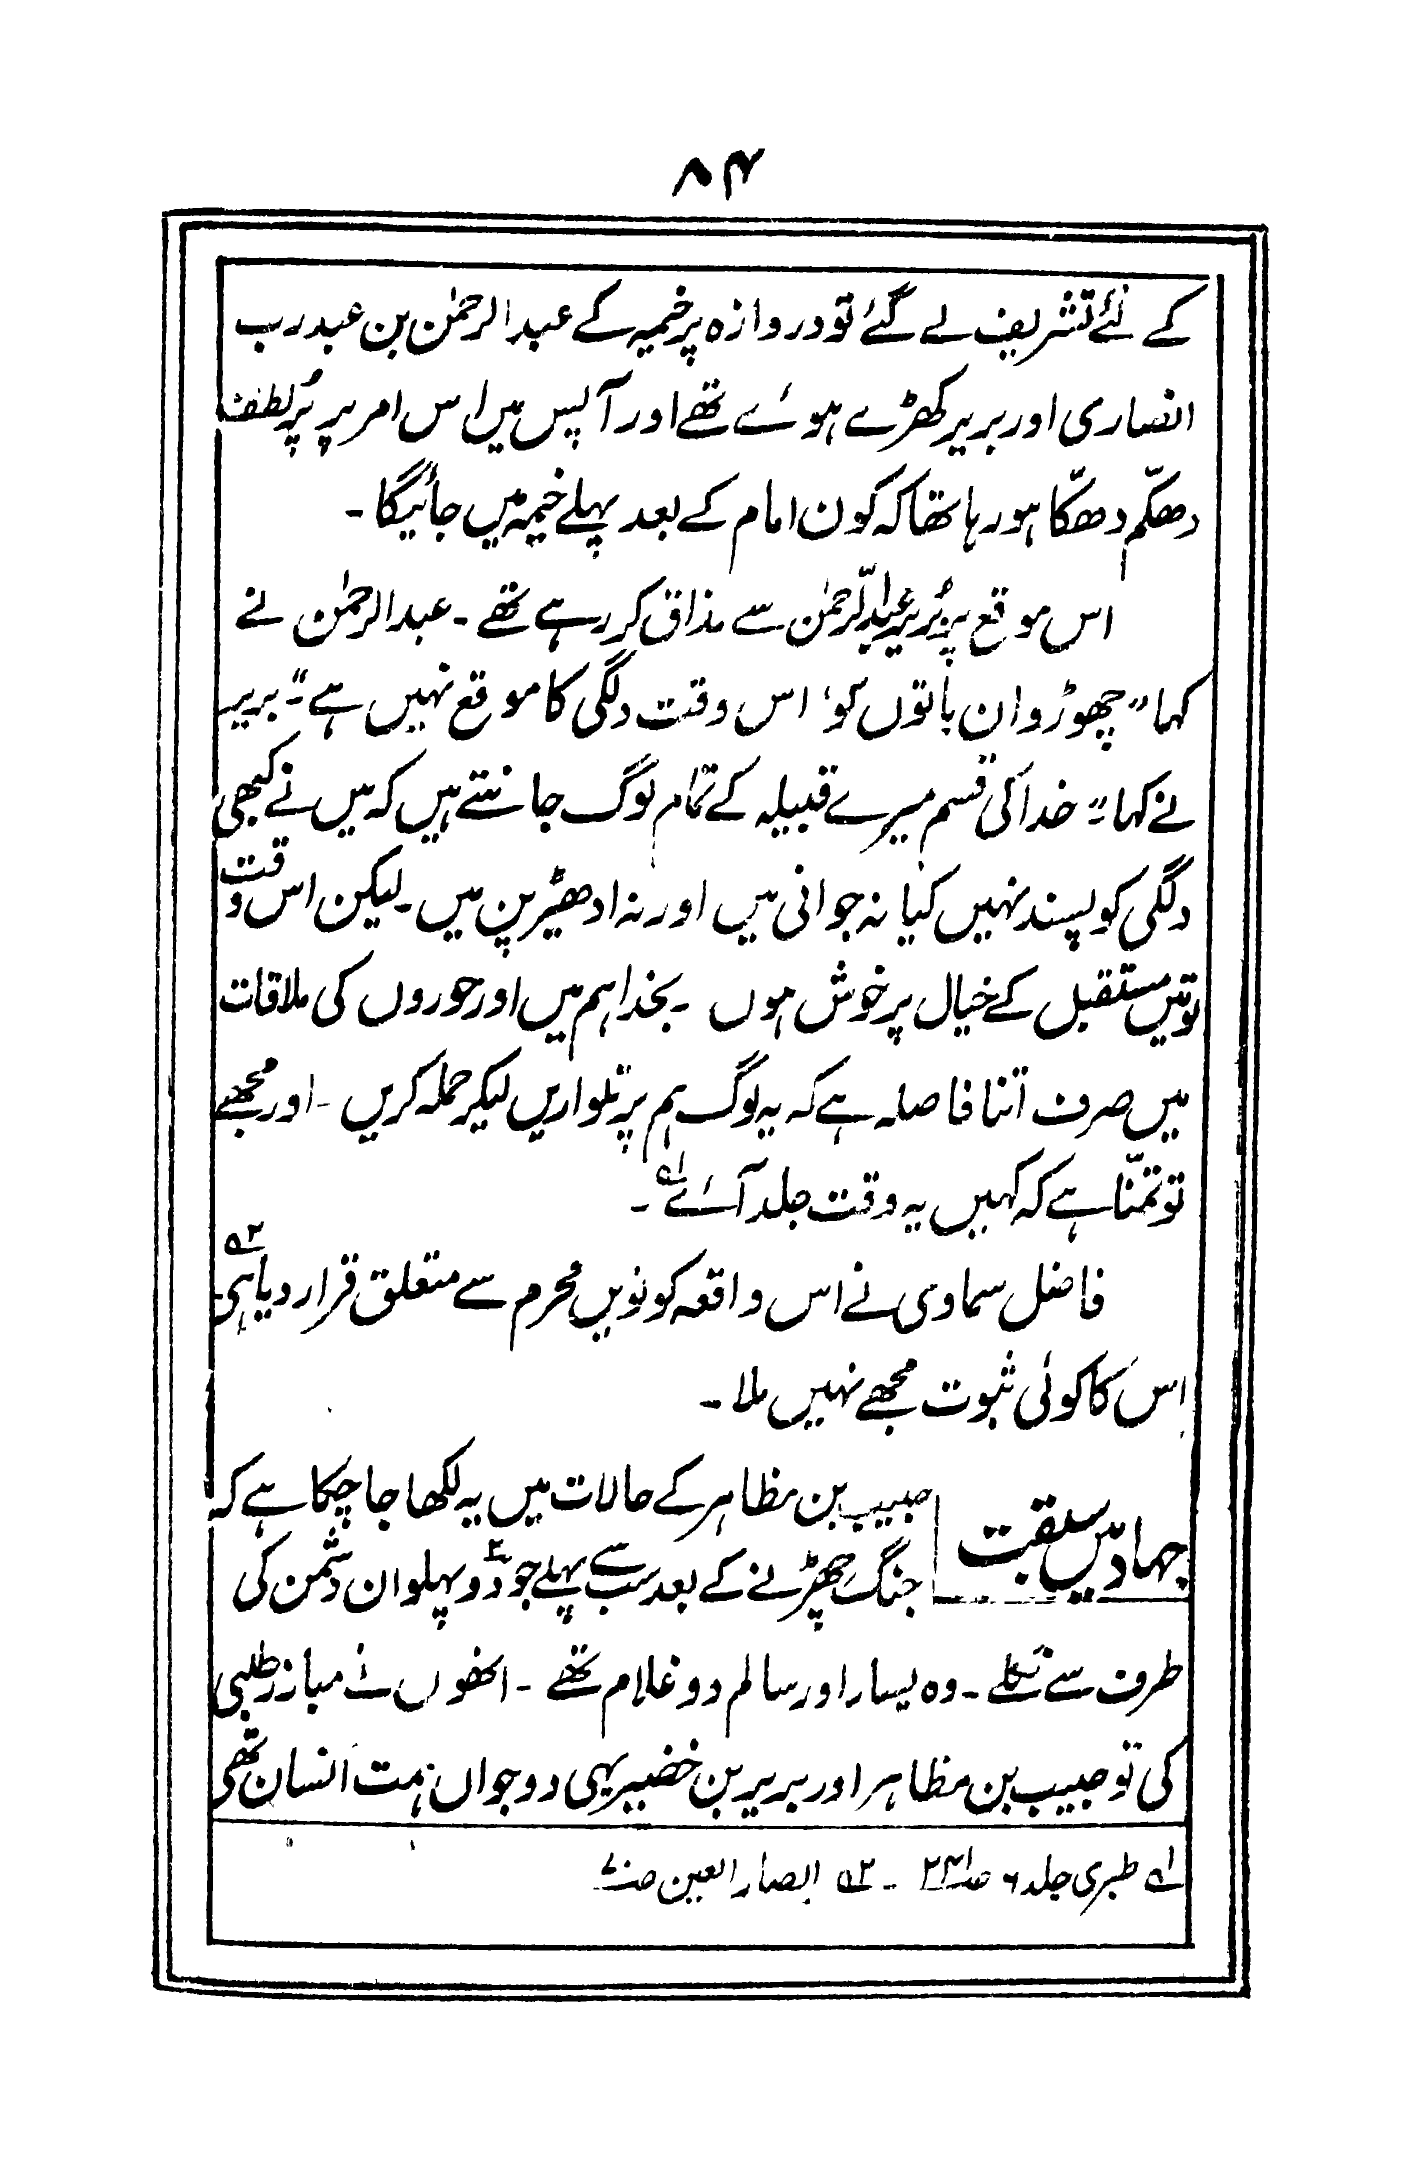 ۸۴
کے لئے تشریف لے گئے تو دروازہ پر خیمہ کے عبدالرحمٰن بن عبدرب
انصاری اور بریر کھڑے ہوئے تھے اور آپس میں اس امر پر پُر لطف
دھکّم دھکّا ہو رہا تھا کہ کون امام کے بعد پہلے خیمہ میں جائیگا ۔
اس موقع پر بُریر عبدالرّحمٰن سے مذاق کر رہے تھے ۔ عبدالرحمٰن نے
کہا " چھوڑو ان باتوں کو، اس وقت دلگی کا موقع نہیں ہے "۔ بریر
نے کہا " خدا کی قسم میرے قبیلہ کے تمام لوگ جانتے ہیں کہ میں نے کبھی
دلگی کو پسند نہیں کیا نہ جوانی میں اور نہ ادھیڑ پن میں ۔ لیکن اس وقت
تو میں مستقبل کے خیال پر خوش ہوں ۔ بخدا ہم میں اور حوروں کی ملاقات
میں صرف اتنا فاصلہ ہے کہ یہ لوگ ہم پر تلواریں لیکر حملہ کریں ۔ اور مجھے
تو تمنّا ہے کہ کہیں یہ وقت جلد آئے ۱؎ ۔
فاضل سماوی نے اس واقعہ کو نویں محرم سے متعلق قرار دیا ہی ۲؎
اس کا کوئی ثبوت مجھے نہیں ملا ۔
جہاد میں سبقت
حبیب بن مظاہر کے حالات میں یہ لکھا جا چکا ہے کہ
جنگ چھڑنے کے بعد سب سے پہلے جو دو ۲ پہلوان دشمن کی
طرف سے نکلے ۔ وہ یسار اور سالم دو غلام تھے ۔ انھوں نے مبارز طلبی
کی تو حبیب بن مظاہر اور بریر بن خضیر یہی دو جواں ہمت انسان تھی
۱؎ طبری جلد ۶ ص۲۴۱ ۔ ۲؎ ابصار العین ص۷۰